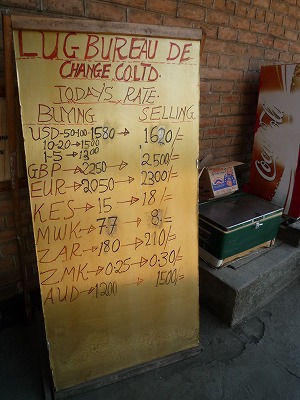 LUG BUREAU DE
CHANGE.CO.LTD.
TODAY'S RATE.
BUYING SELLING
USD-50-100 1580→ 1620/=
10-20→1500
1-5→1300
GBP→2250→ 2,500/=
EUR→2050→ 2300/=
KES→15→ 18/=
MWK→ 7.7→ 8/=
ZAR→180→ 210/=
ZMK→0.25→0.30/=
AUD→1200 1500/=
Coca-Cola